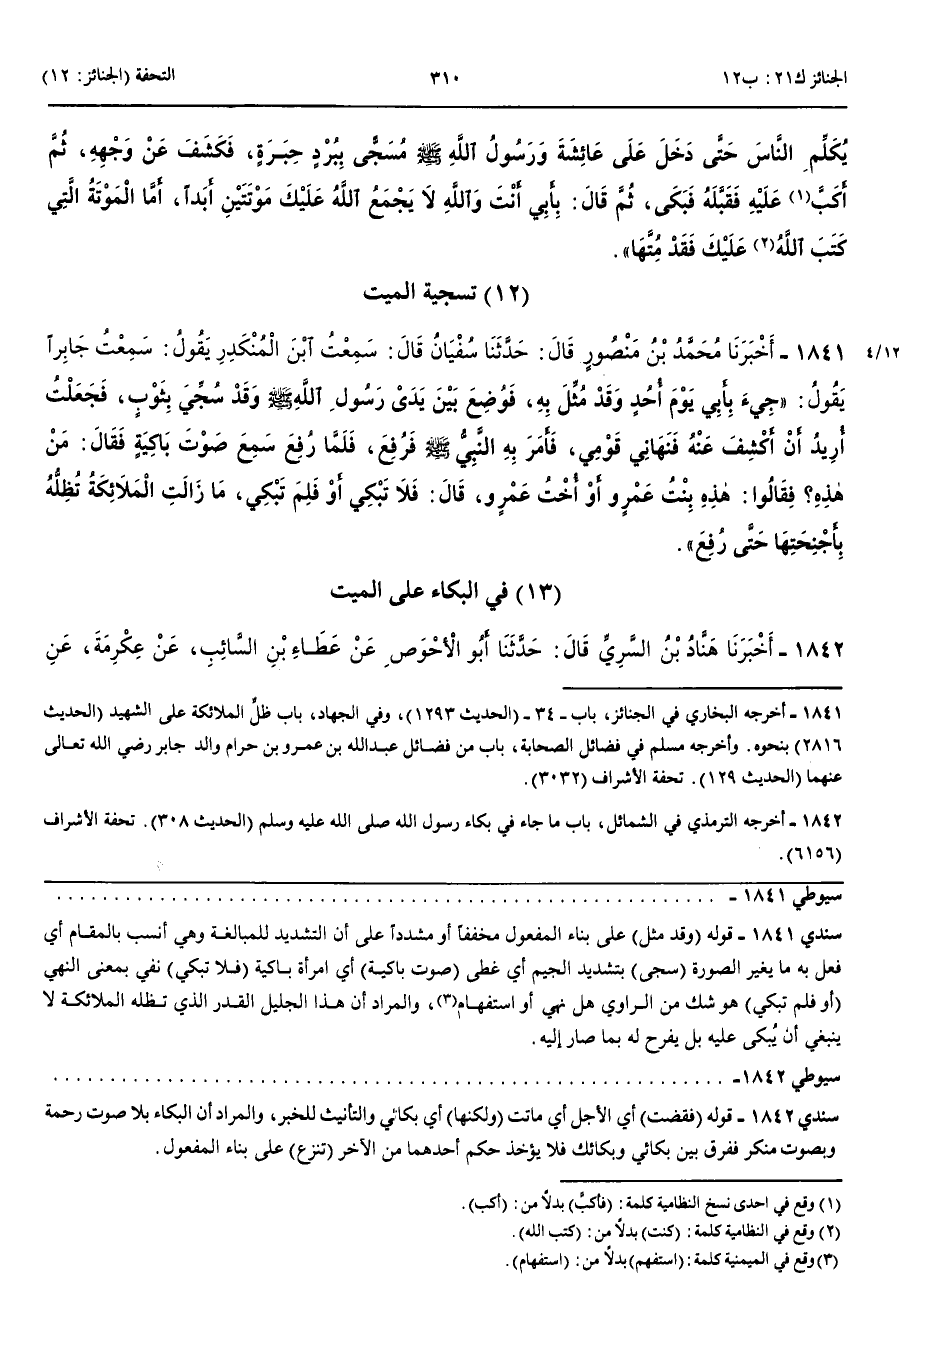 الجنائز ك٢١: ب١٢ ٣١٠ التحفة (الجنائز: ١٢)
يُكَلِّمِ النَّاسَ حَتَّى دَخَلَ عَلَى عَائِشَةَ وَرَسُولُ ٱللَّهِ ﷺ مُسَجًّى بِبُرْدٍ حِبَرَةٍ، فَكَشَفَ عَنْ وَجْهِهِ، ثُمَّ
أَكَبَّ(١) عَلَيْهِ فَقَبَّلَهُ فَبَكَى، ثُمَّ قَالَ: بِأَبِي أَنْتَ وَٱللَّهِ لَا يَجْمَعُ اللَّهُ عَلَيْكَ مَوْتَتَيْنِ أَبَداً، أَمَّا الْمَوْتَةُ الَّتِي
كَتَبَ ٱللَّهُ(٢) عَلَيْكَ فَقَدْ مُتَّهَا».
(١٢) تسجية الميت
١٨٤١ - أَخْبَرَنَا مُحَمَّدُ بْنُ مَنْصُورٍ قَالَ: حَدَّثَنَا سُفْيَانُ قَالَ: سَمِعْتُ ٱبْنَ الْمُنْكَدِرِ يَقُولُ: سَمِعْتُ جَابِراً ٤/١٢
يَقُولُ: «جِيءَ بِأَبِي يَوْمَ أُحُدٍ وَقَدْ مُثِّلَ بِهِ، فَوُضِعَ بَيْنَ يَدَىْ رَسُولِ ٱللَّهِ ﷺ وَقَدْ سُجِّيَ بِثَوْبٍ، فَجَعَلْتُ
أُرِيدُ أَنْ أَكْشِفَ عَنْهُ فَنَهَانِي قَوْمِي، فَأَمَرَ بِهِ النَّبِيُّ ﷺ فَرُفِعَ، فَلَمَّا رُفِعَ سَمِعَ صَوْتَ بَاكِيَةٍ فَقَالَ: مَنْ
هٰذِهِ؟ فِقَالُوا: هٰذِهِ بِنْتُ عَمْرٍو أَوْ أُخْتُ عَمْرٍو، قَالَ: فَلَا تَبْكِي أَوْ فَلِمَ تَبْكِي، مَا زَالَتِ الْمَلَائِكَةُ تُظِلُّهُ
بِأَجْنِحَتِهَا حَتَّى رُفِعَ».
(١٣) في البكاء على الميت
١٨٤٢ - أَخْبَرَنَا هَنَّادُ بْنُ السَّرِيِّ قَالَ: حَدَّثَنَا أَبُو الْأَحْوَصِ عَنْ عَطَاءِ بْنِ السَّائِبِ، عَنْ عِكْرِمَةَ، عَنِ
١٨٤١ - أخرجه البخاري في الجنائز، باب - ٣٤ - (الحديث ١٢٩٣)، وفي الجهاد، باب ظلِّ الملائكة على الشهيد (الحديث
٢٨١٦) بنحوه. وأخرجه مسلم في فضائل الصحابة، باب من فضائل عبدالله بن عمرو بن حرام والد جابر رضي الله تعالى
عنهما (الحديث ١٢٩). تحفة الأشراف (٣٠٣٢).
١٨٤٢ - أخرجه الترمذي في الشمائل، باب ما جاء في بكاء رسول الله صلى الله عليه وسلم (الحديث ٣٠٨). تحفة الأشراف
(٦١٥٦).
سيوطي ١٨٤١ - ..........
سندي ١٨٤١ - قوله (وقد مثل) على بناء المفعول مخففاً أو مشدداً على أن التشديد للمبالغة وهي أنسب بالمقام أي
فعل به ما يغير الصورة (سجى) بتشديد الجيم أي غطى (صوت باكية) أي امرأة باكية (فلا تبكي) نفي بمعنى النهي
(أو فلم تبكي) هو شك من الراوي هل نهي أو استفهام(٣)، والمراد أن هذا الجليل القدر الذي تظله الملائكة لا
ينبغي أن يُبكى عليه بل يفرح له بما صار إليه.
سيوطي ١٨٤٢- ..........
سندي ١٨٤٢ - قوله (فقضت) أي الأجل أي ماتت (ولكنها) أي بكائي والتأنيث للخبر، والمراد أن البكاء بلا صوت رحمة
وبصوت منكر ففرق بين بكائي وبكائك فلا يؤخذ حكم أحدهما من الآخر (تنزع) على بناء المفعول.
(١) وقع في احدى نسخ النظامية كلمة: (فأكبَّ) بدلاً من: (أكب).
(٢) وقع في النظامية كلمة: (كنت) بدلاً من: (كتب الله).
(٣) وقع في الميمنية كلمة: (استفهم) بدلاً من: (استفهام).